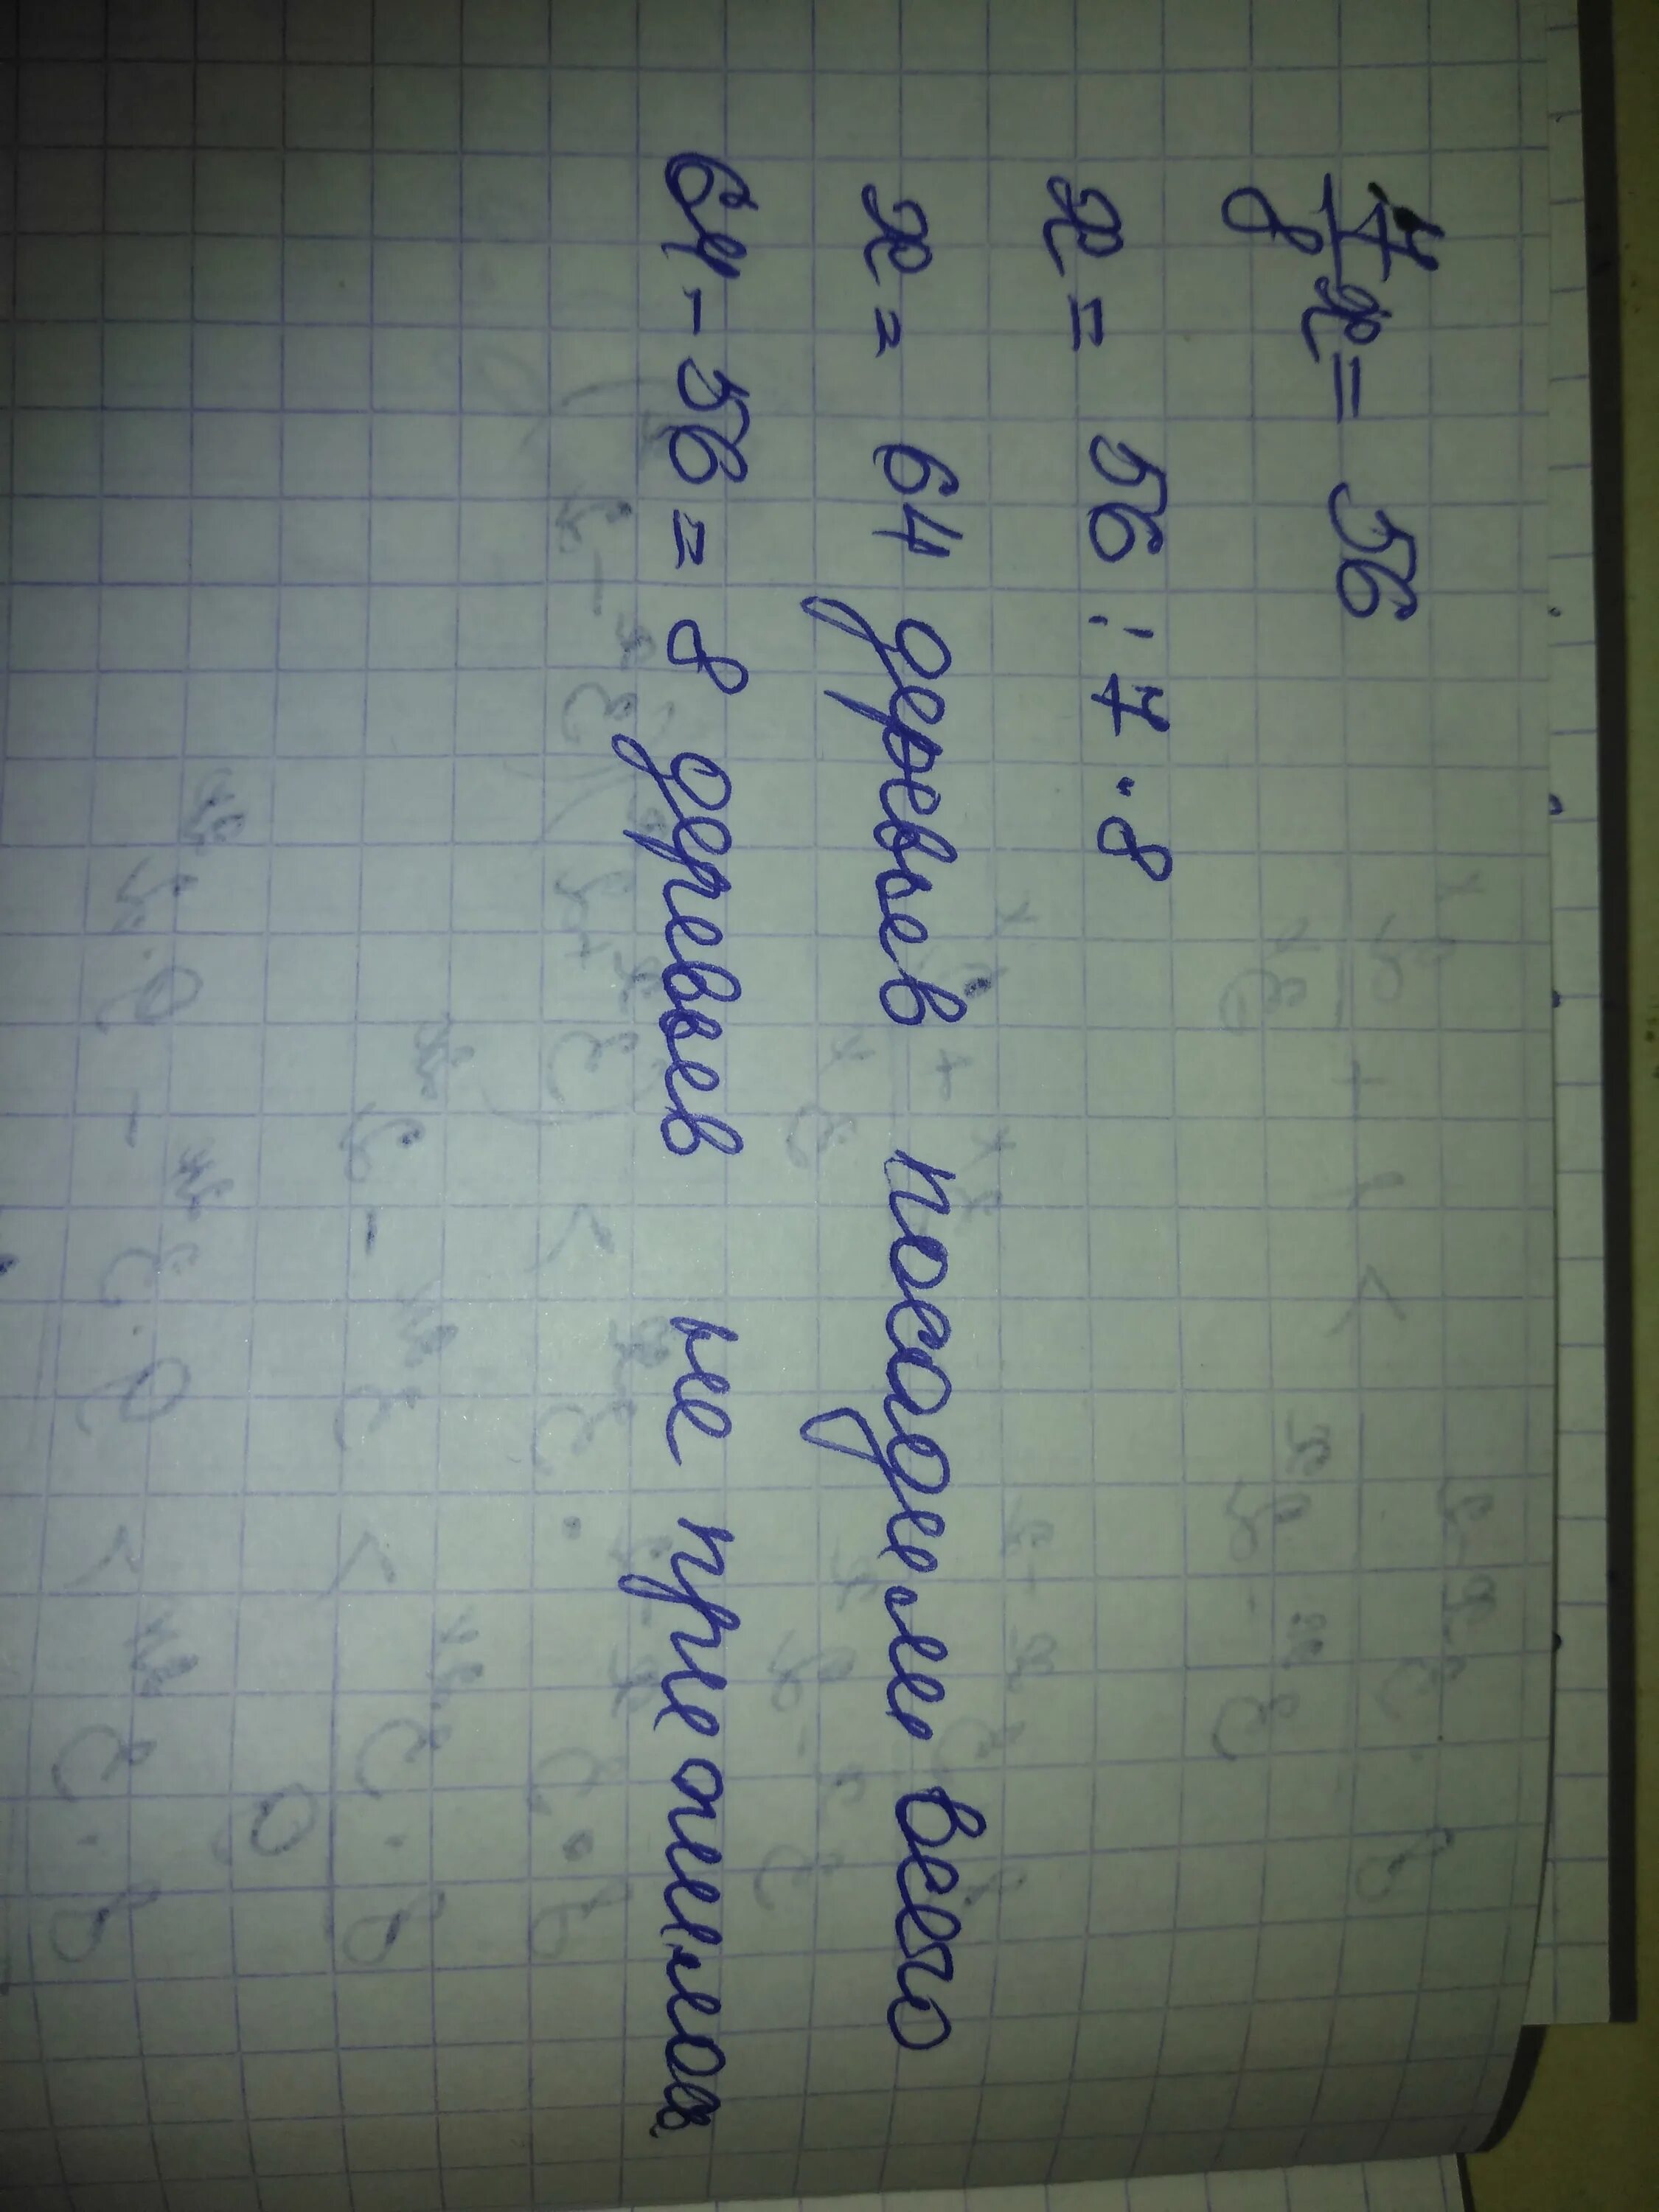 7/8 x = 56
x = 56 : 7 · 8
x = 64 деревьев посадили всего
64 - 56 = 8 деревьев не прижилось